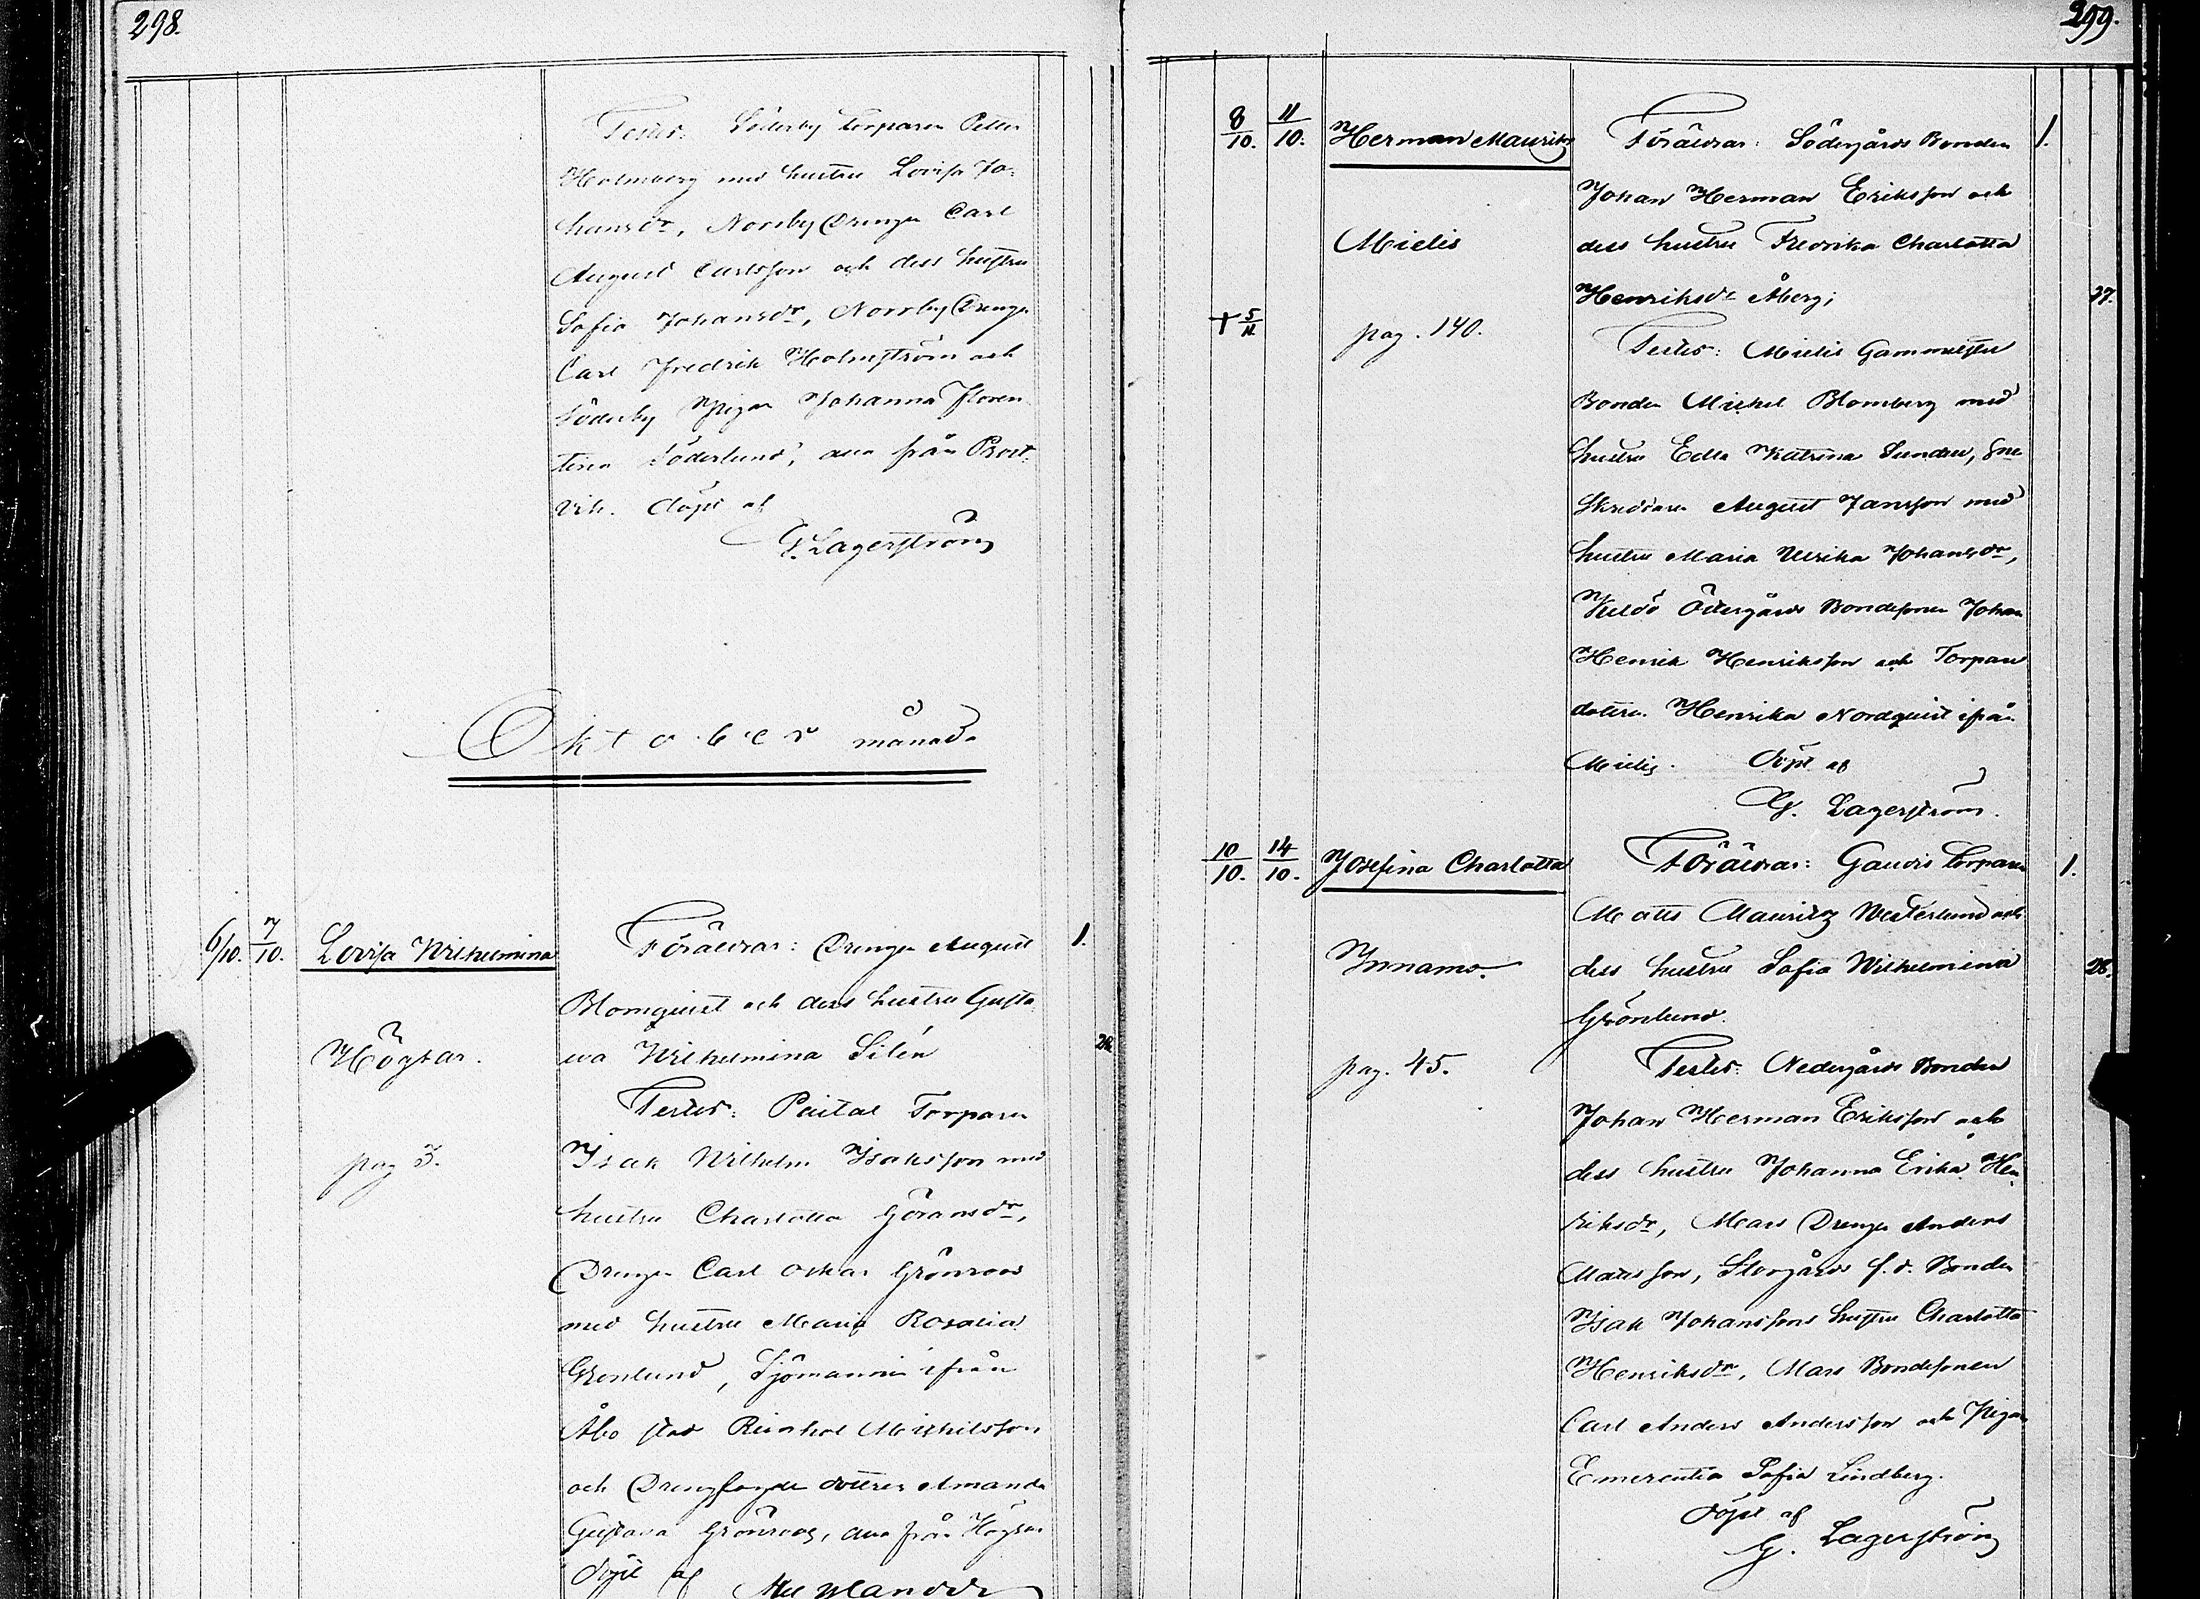 298.
Testes: Söderby Torparen Petter
Holmberg med hustru Lovisa Jo-
hansdr, Norrby Drengen Carl
August Carlsson och dess hustru
Sofia Johansdr, Norrby Drengen
Carl Fredrik Holmström och
Söderby Pigan Johanna Floren
tina Söderlund, alla från Prost-
vik. Döpt af
G. Lagerström
Oktober månad
6/10. 7/10. Lovisa Wilhelmina
Högsar.
pag 3.
Föräldrar: Drengen August 1.
Blomquist och dess hustru Gusta
va Wilhelmina Silén
Testes: Paital Torparen
Isak Wilhelm Isaksson med
hustru Charlotta Göransdr,
Drengen Carl Oskar Grönroos
med hustru Maria Rosalia
Grönlund, Sjömannen ifrån
Åbo stad Reinhol Michilsson
och Drengfogde dottren Amanda
Gustava Grönroos, alla från Högsar
Döpt af
299.
8/10. 11/10. Herman Mauritz
Mielis
† 5/11 pag. 140.
Föräldrar: Södergårds Bonden 1.
Johan Herman Eriksson och
dess hustru Fredrika Charlotta
Henriksdr Åberg; 27.
Testes: Mielis Gammelgård
Bonden Michel Blomberg med
hustru Edla Katrina Sundell,
Skreddaren August Jansson med
hustru Maria Ulrika Johansdr,
Östergårds Bondesonen Johan
Henrik Henriksson och Torpare
dottren Henrika Nordquist ifrån
Mielis. Döpt af
G. Lagerström.
10/10. 14/10. Josefina Charlotta
Innamo.
pag. 45.
Föräldrar: Gaudis Torparen 1.
Matts Mauritz Westerlund och
dess hustru Sofia Wilhelmina 28.
Grönlund.
Testes: Nedergårds Bonden
Johan Herman Eriksson och
dess hustru Johanna Erika Hen
riksdr, Mars Drengen Anders
Mattsson, Storgårds f.d. Bonden
Isak Johanssons hustru Charlotta
Henriksdr, Mars Bondesonen
Carl Anders Andersson och Pigan
Emerentia Sofia Lindberg.
Döpt af
G. Lagerström